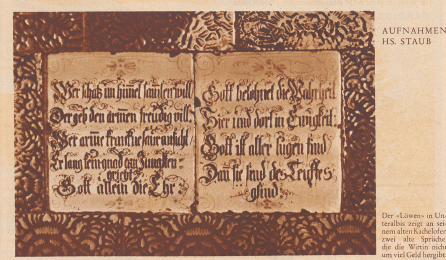 Wer schätz im himel samlen will
Der geb den armen freudig vill:
Wer arme kranke hier
Er lang kein gnad am Jüngsten=
gricht
Gott allein die Ehr
Gott belohnet die Wahrheit
Hier und dort in Ewigkeit:
Gott ist aller lugen find
Dan sie send des Teuffels
gsind
AUFNAHMEN
HS. STAUB
Der «Löwen» in Un-
teralbis zeigt an sei-
nem alten Kachelofen
zwei alte Sprüche
die die Wirtin nicht
um viel Geld hergibt